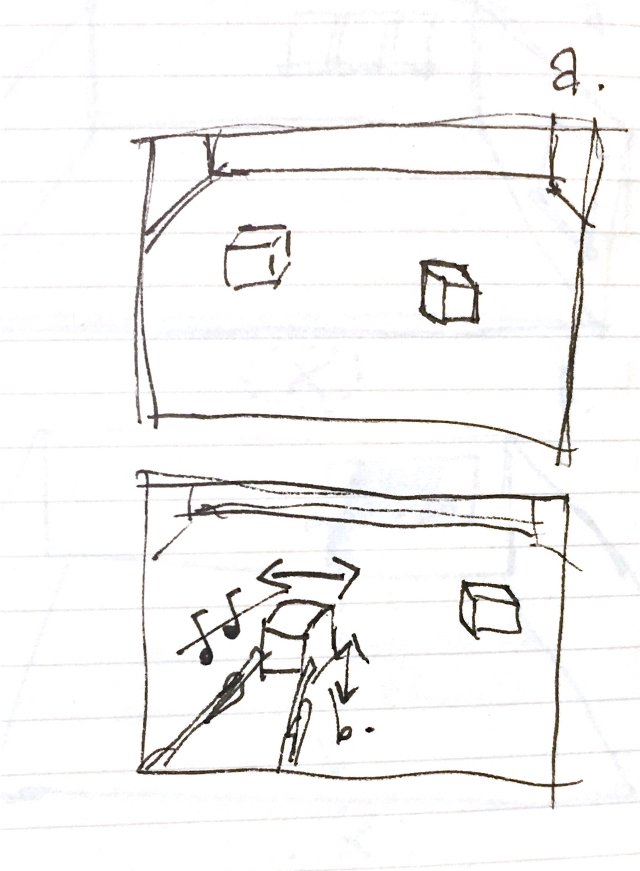 a.
b.